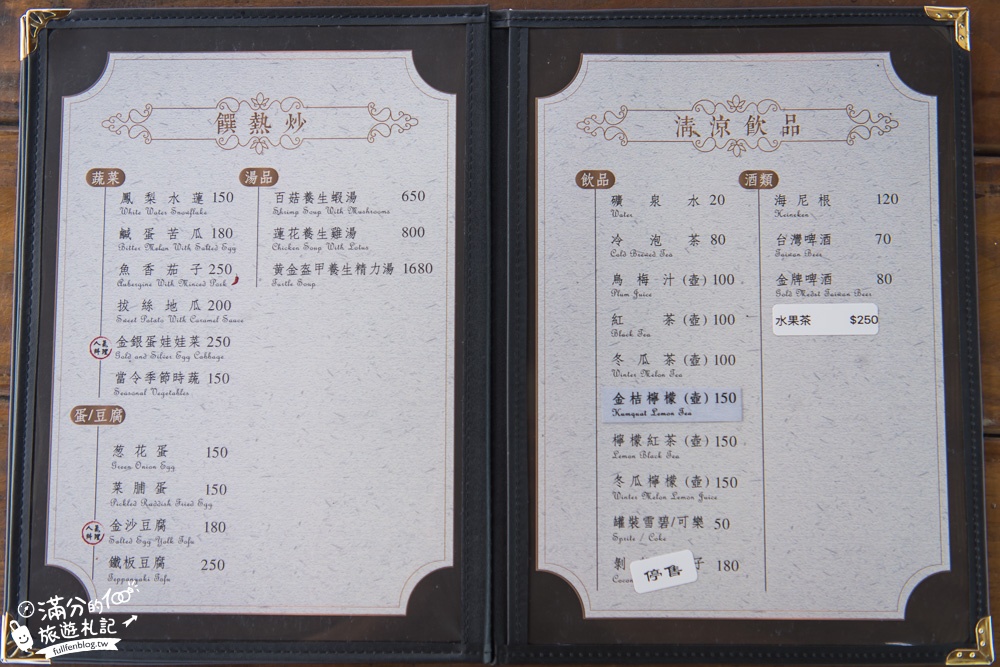 饌熱炒
蔬菜
鳳梨水蓮 150
White Water Snowflake
鹹蛋苦瓜 180
Bitter Melon With Salted Egg
魚香茄子 250
Aubergine With Minced Pork
拔絲地瓜 200
Sweet Potato With Caramel Sauce
人氣料理
金銀蛋娃娃菜 250
Gold and Silier Egg Cabbage
當令季節時蔬 150
Seasonal Vegetables
蛋/豆腐
葱花蛋 150
Green Onion Egg
菜脯蛋 150
Pickled Raddish Fried Egg
人氣料理
金沙豆腐 180
Salted Egg Yolk Tofu
鐵板豆腐 250
Teppanyaki Tofu
湯品
百菇養生蝦湯 650
Shrimp Soup With Mushrooms
蓮花養生雞湯 800
Chicken Soup With Lotus
黃金盔甲養生精力湯 1680
Turtle Soup
清涼飲品
飲品
礦泉水 20
Water
冷泡茶 80
Cold Brewed Tea
烏梅汁(壺) 100
Plum Juice
紅茶(壺) 100
Black Tea
冬瓜茶(壺) 100
Winter Melon Tea
金桔檸檬(壺) 150
Kumquat Lemon Tea
檸檬紅茶(壺) 150
Lemon Black Tea
冬瓜檸檬(壺) 150
Winter Melon Lemon Juice
罐裝雪碧/可樂 50
Sprite / Coke
剝 子 180
停售
酒類
海尼根 120
Heineken
台灣啤酒 70
Taiwan Beer
金牌啤酒 80
Gold Medal Taiwan Beer
水果茶 $250
滿分的100
旅遊札記
fullfenblog.tw